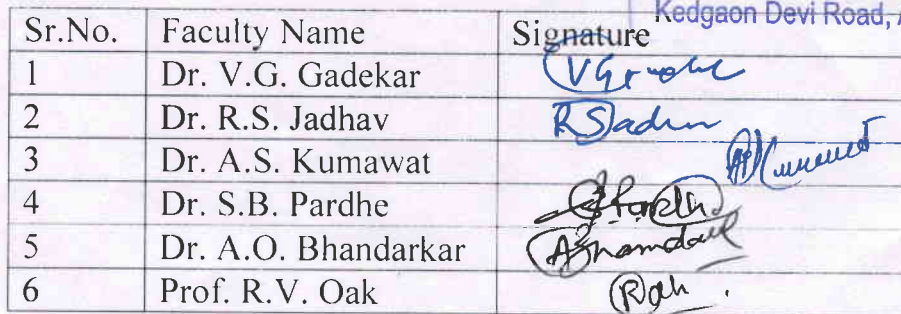 Kedgaon Devi Road, A
Sr.No. Faculty Name Signature
1 Dr. V.G. Gadekar
2 Dr. R.S. Jadhav
3 Dr. A.S. Kumawat
4 Dr. S.B. Pardhe
5 Dr. A.O. Bhandarkar
6 Prof. R.V. Oak